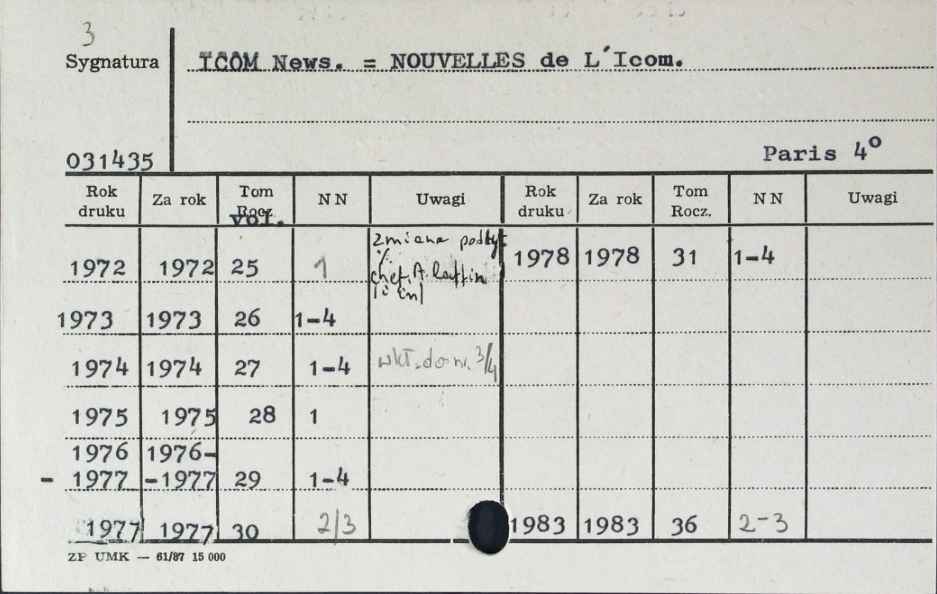 3
Sygnatura ICOM News. = NOUVELLES de L´Icom.
031435 Paris 4°
Rok druku Za rok Tom Rocz. vol. NN Uwagi Rok druku Za rok Tom Rocz. NN Uwagi
1972 1972 25 1 zmiana 1978 1978 31 1-4
1973 1973 26 1-4
1974 1974 27 1-4 wkł. do nr. 3/4
1975 1975 28 1
1976 1976-
- 1977 -1977 29 1-4
1977 1977 30 2/3 1983 1983 36 2-3
ZP UMK — 61/87 15 000